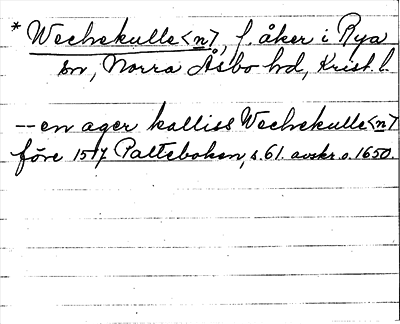 * Wechekulle<n>, f. åker i Rya
sn, Norra Åsbo hd, Krist. l.
-- en ager kalliss Wechekulle<n>
före 1517 Palteboken, s. 61. avskr. o. 1650.